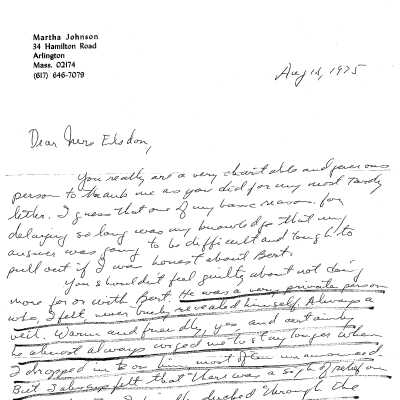 Martha Johnson
34 Hamilton Road
Arlington
Mass. 02174
(617) 646-7079
Aug 18, 1975
Dear Mrs Elsdon,
You really are a very charitable and generous
person to thank me as you did for my most tardy
letter. I guess that one of my basic reasons for
delaying so long was my knowledge that my
answer was going to be difficult and tough to
pull out if I was honest about Bert.
You shouldn't feel guilty about not doing
more for or with Bert. He was a very private person
who, I felt, never truly revealed himself. Always a
veil. Warm and friendly, yes and certainly
he almost always urged me to stay longer when
I dropped in to see him most often unannounced.
But I always felt that there was a sigh of relief on
ducked through the